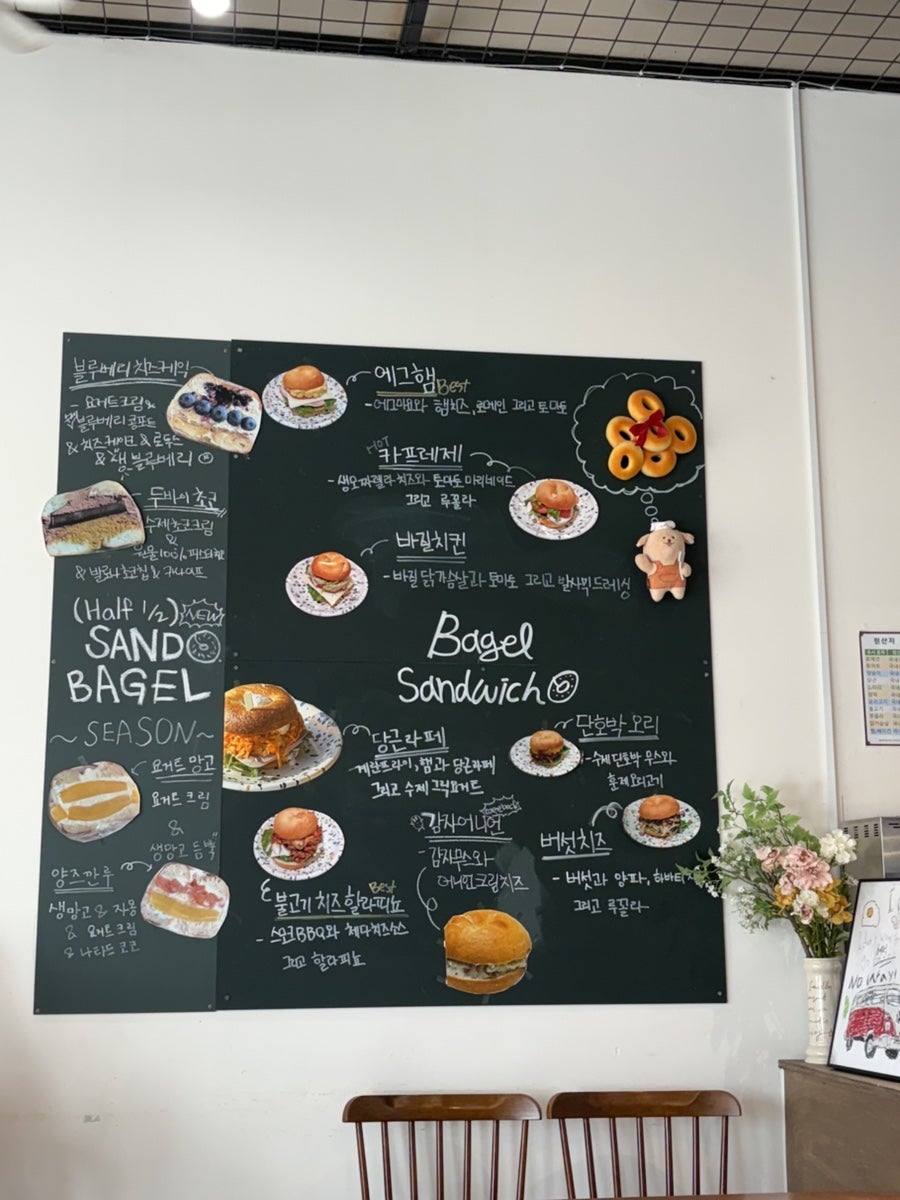 블루베리 치즈케익
- 요거트크림 &
블루베리 콤포트
& 치즈케이크 & 로투스
& 생 블루베리
두바이 초코
수제 초코크림
&
원물100% 피스타치오
& 발로나 초코칩 & 카다이프
(Half 1/2) NEW
SANDO
BAGEL
~ SEASON ~
요거트 망고
요거트 크림
&
생망고 듬뿍
양즈깐루
생망고 & 자몽
& 요거트 크림
& 나타드 코코
에그햄 Best
- 에그마요와 햄치즈, 로메인 그리고 토마토
HOT
카프레제
- 생모짜렐라 치즈와 토마토 마리네이드
그리고 루꼴라
바질치킨
- 바질 닭가슴살과 토마토 그리고 발사믹드레싱
Bagel
Sandwich
당근라페
계란프라이, 햄과 당근라페
그리고 수제 그릭요거트
단호박 오리
- 수제단호박 무스와
훈제오리고기
comeback
감자어니언
- 감자무스와
어니언크림치즈
버섯치즈
- 버섯과 양파, 하바티
그리고 루꼴라
Best
불고기 치즈 할라피뇨
- 스모크BBQ와 체다치즈소스
그리고 할라피뇨
원산지
No Way!